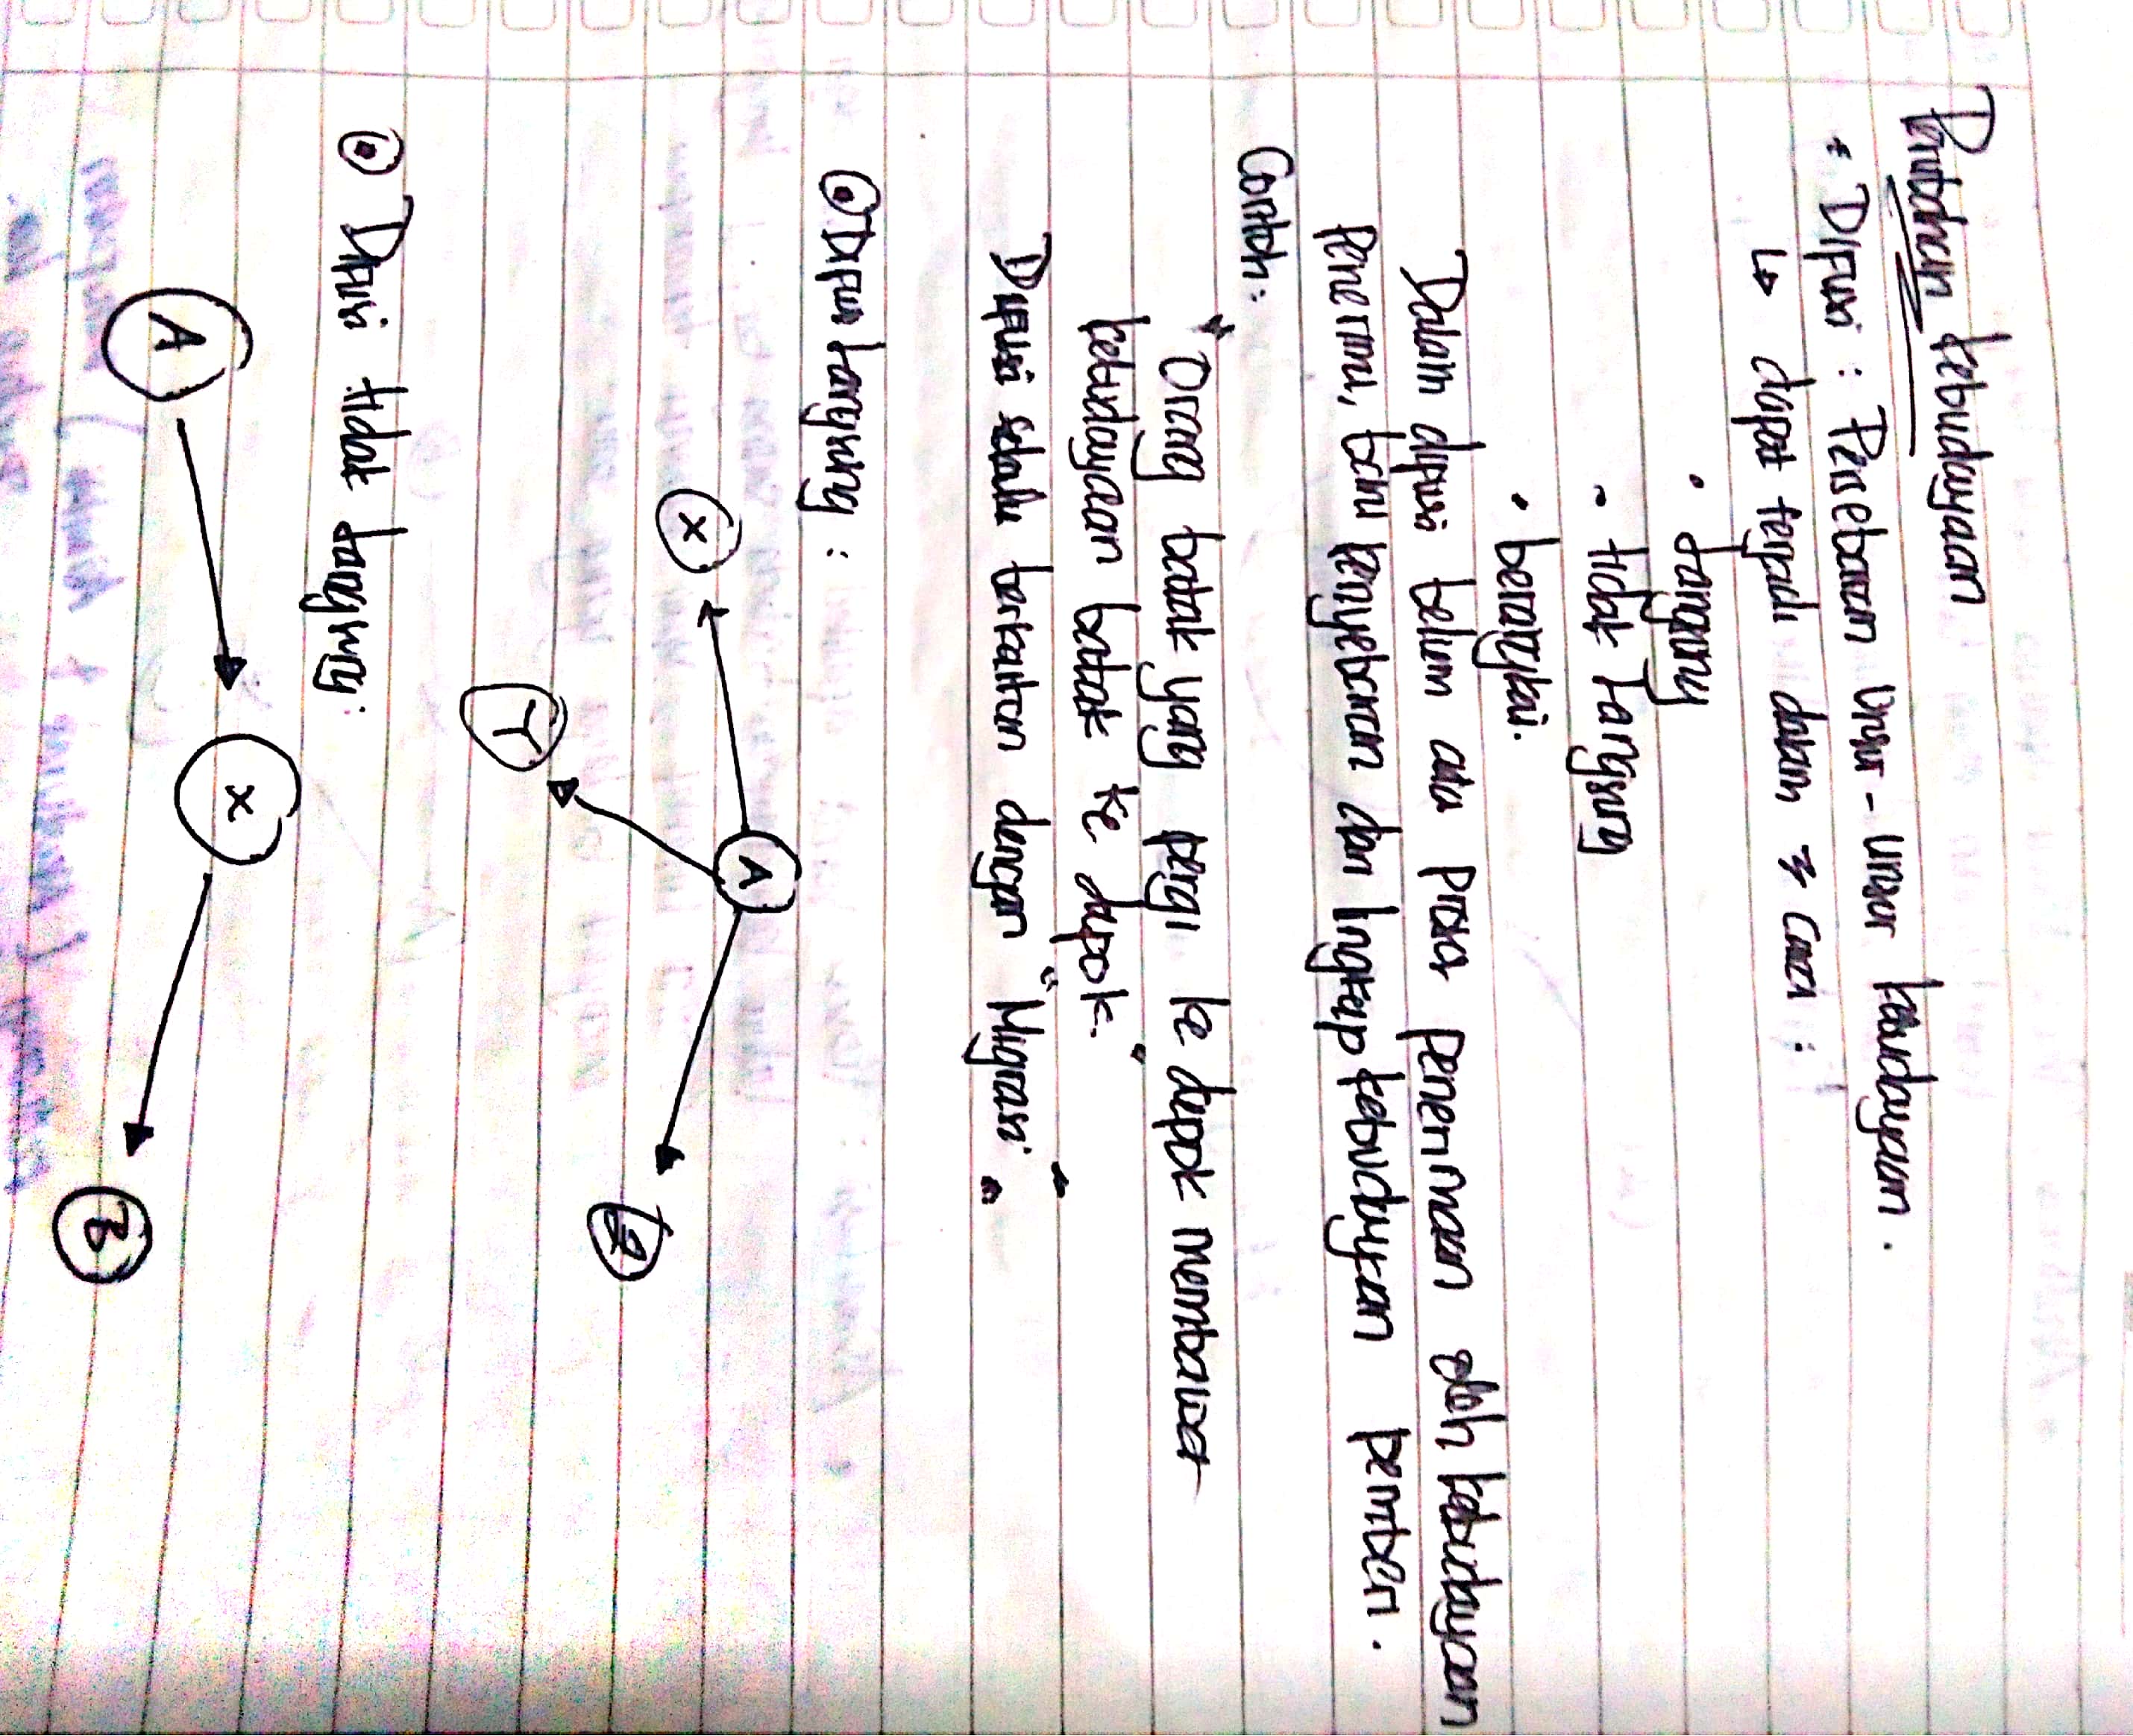 Perubahan kebudayaan
* Difusi : Persebaran unsur - unsur kebudayaan.
↳ dapat terjadi dalam 3 cara :
• Langsung
• tidak Langsung
• berangkai.
Dalam difusi belum ada proses penerimaan oleh kebudayaan
Penerima, baru penyebaran dari lingkup kebudayaan pemberi.
Contoh:
" Orang batak yang pergi ke depok membawa
kebudayaan batak ke depok. "
Difusi selalu berkaitan dengan " Migrasi "
⊙ Difusi Langsung :
X A
Y Z
⊙ Difusi tidak langsung.
A → X → B